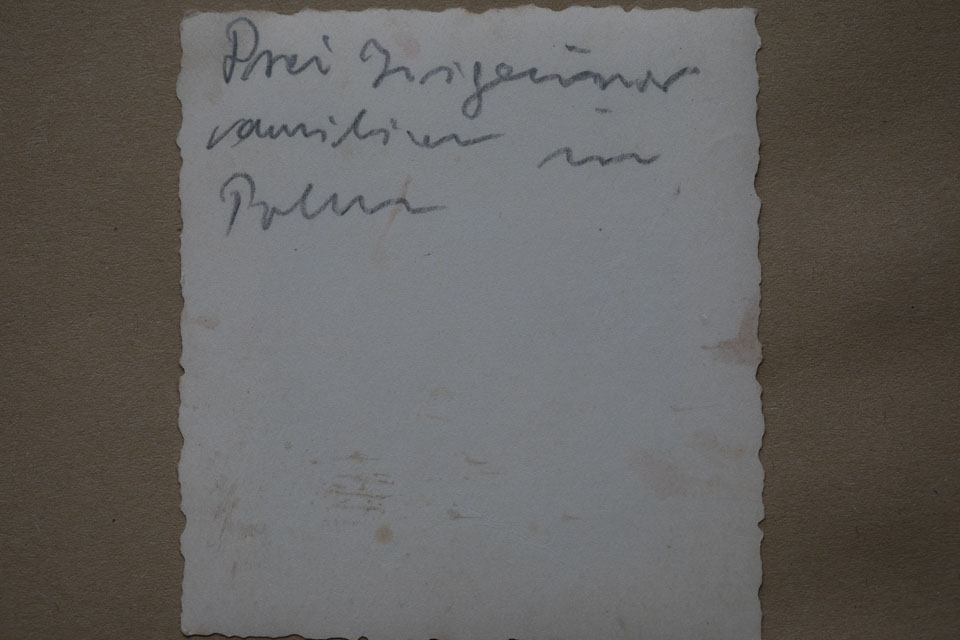 Drei Zigeuner
vamilien in
Polen